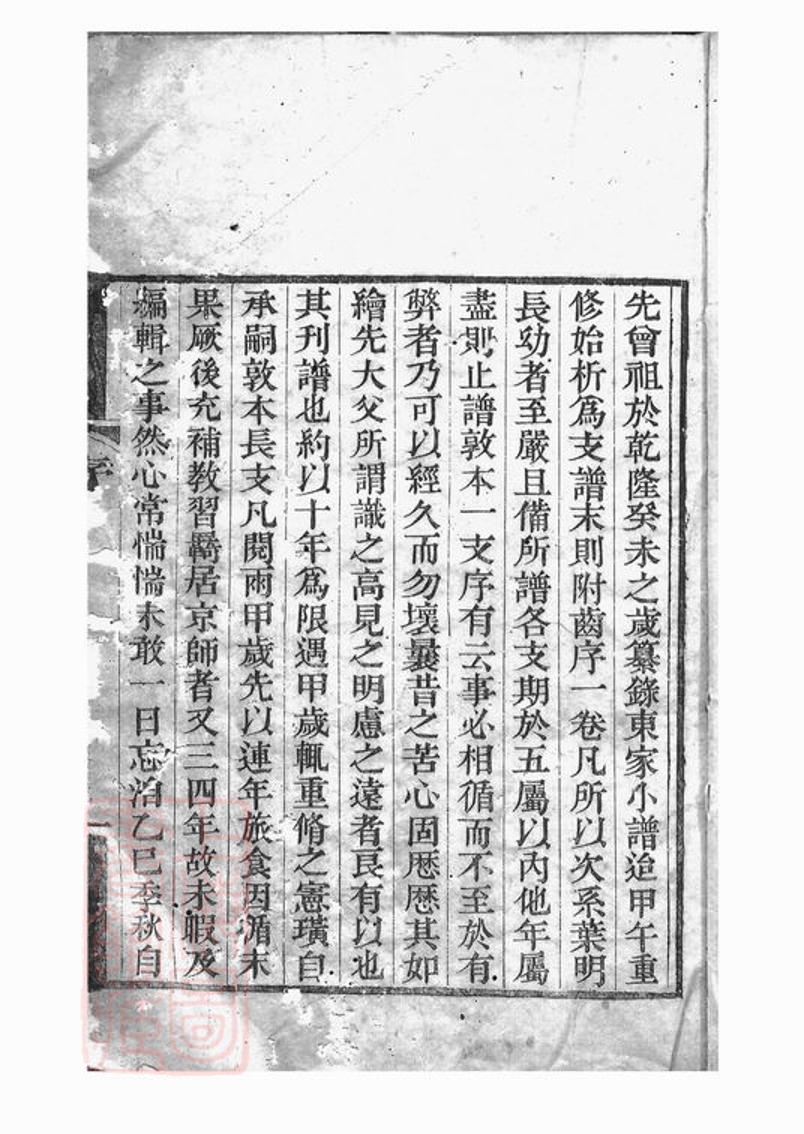 先曾祖於乾隆癸未之歲纂錄東家小譜迨甲午重
修始析爲支譜末則附齒序一卷凡所以次系葉明
長幼者至嚴且備所譜各支期於五屬以內他年屬
盡則止譜敦本一支序有云事必相循而不至於有
弊者乃可以經久而勿壞曩昔之苦心固厯厯其如
繪先大父所謂識之高見之明慮之遠者良有以也
其刋譜也約以十年爲限遇甲歲輒重脩之憲璜自
承嗣敦本長支凡閱兩甲歲先以連年旅食因循未
果厥後充補教習羇居京師者又三四年故未暇及
編輯之事然心常惴惴未敢一日忘洎乙巳季秋自
序
一